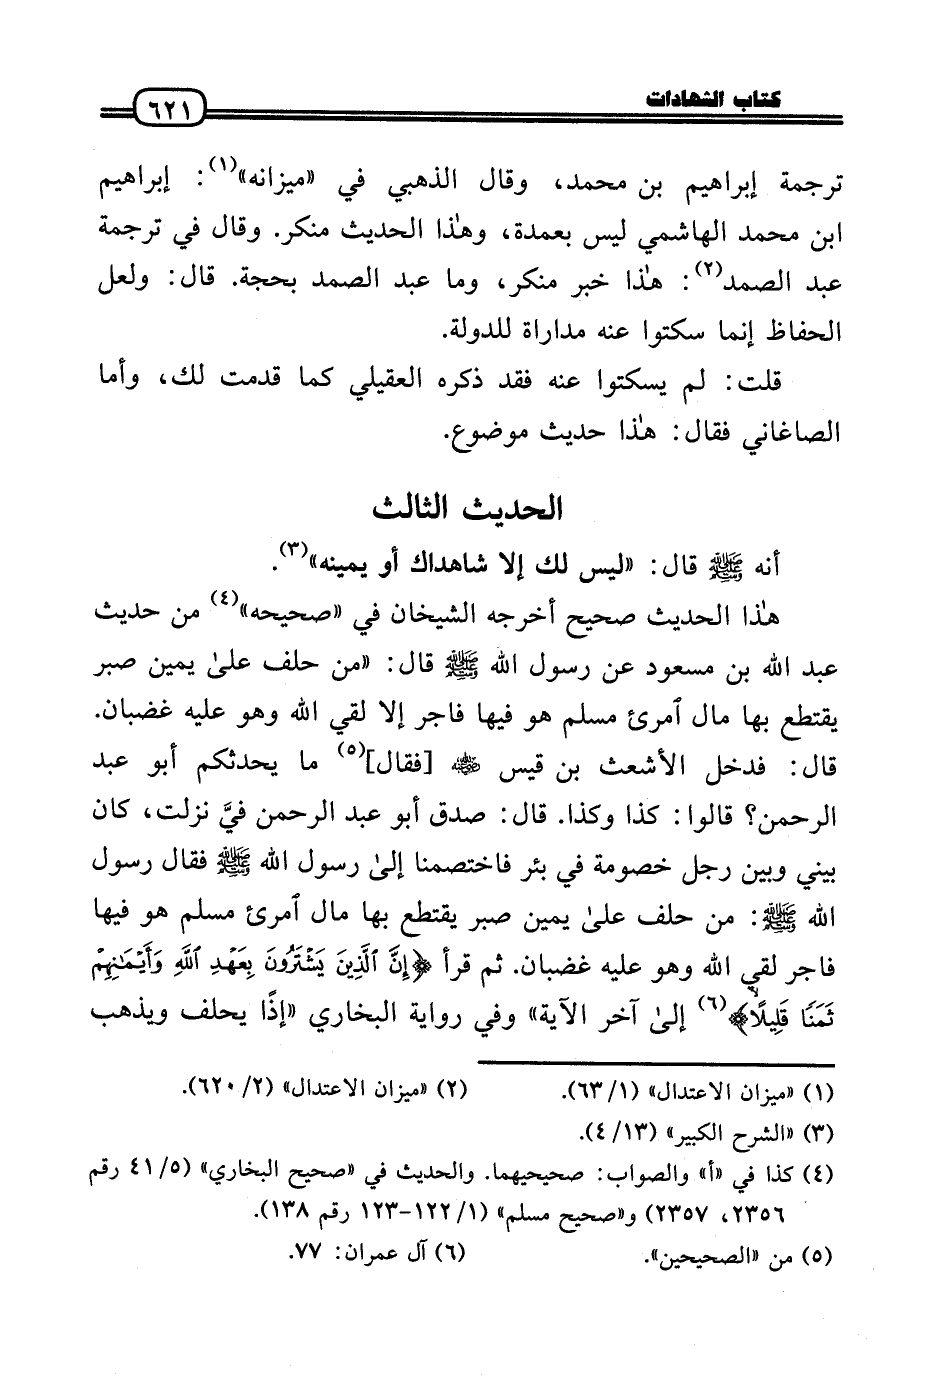 كتاب الشهادات
٦٢١
ترجمة إبراهيم بن محمد، وقال الذهبي في «ميزانه»(١): إبراهيم
ابن محمد الهاشمي ليس بعمدة، وهٰذا الحديث منكر. وقال في ترجمة
عبد الصمد(٢): هٰذا خبر منكر، وما عبد الصمد بحجة. قال: ولعل
الحفاظ إنما سكتوا عنه مداراة للدولة.
قلت: لم يسكتوا عنه فقد ذكره العقيلي كما قدمت لك، وأما
الصاغاني فقال: هٰذا حديث موضوع.
الحديث الثالث
أنه ﷺ قال: «ليس لك إلا شاهداك أو يمينه»(٣).
هٰذا الحديث صحيح أخرجه الشيخان في «صحيحه»(٤) من حديث
عبد الله بن مسعود عن رسول الله ﷺ قال: «من حلف علىٰ يمين صبر
يقتطع بها مال ٱمرئ مسلم هو فيها فاجر إلا لقي الله وهو عليه غضبان.
قال: فدخل الأشعث بن قيس رضي الله عنه [فقال](٥) ما يحدثكم أبو عبد
الرحمن؟ قالوا: كذا وكذا. قال: صدق أبو عبد الرحمن فيَّ نزلت، كان
بيني وبين رجل خصومة في بئر فاختصمنا إلىٰ رسول الله ﷺ فقال رسول
الله ﷺ: من حلف علىٰ يمين صبر يقتطع بها مال ٱمرئ مسلم هو فيها
فاجر لقي الله وهو عليه غضبان. ثم قرأ ﴿إِنَّ ٱلَّذِينَ يَشْتَرُونَ بِعَهْدِ ٱللَّهِ وَأَيْمَـٰنِهِمْ
ثَمَنًا قَلِيلًا﴾(٦) إلىٰ آخر الآية» وفي رواية البخاري «إذًا يحلف ويذهب
(١) «ميزان الاعتدال» (١/ ٦٣). (٢) «ميزان الاعتدال» (٢/ ٦٢٠).
(٣) «الشرح الكبير» (١٣/ ٤).
(٤) كذا في «أ» والصواب: صحيحيهما. والحديث في «صحيح البخاري» (٥/ ٤١ رقم
٢٣٥٦، ٢٣٥٧) و«صحيح مسلم» (١/ ١٢٢-١٢٣ رقم ١٣٨).
(٥) من «الصحيحين». (٦) آل عمران: ٧٧.